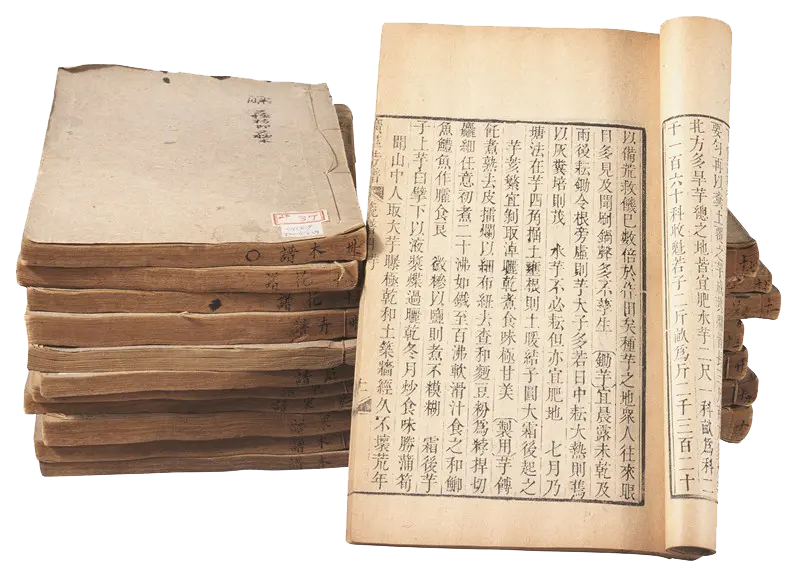 要勻再以糞土覆之
北方多旱芋總之地皆宜肥水芋二尺一科畝為科二
千一百六十科收魁若子二斤畝為斤二千三百二十
以備荒救饑已數倍於作田矣種芋之地衆人往來眼
目多見及聞刷鍋聲多不孳生 鋤芋宜晨露未乾及
雨後耘鋤令根旁虛則芋大子多若日中耘大熱則蔫
以灰糞培則茂 水芋不必耘但亦宜肥地 七月乃
塘法在芋四角掘土壅根則土暖結子圓大霜後起之
芋荄繁宜剝取淖曬乾煮食味極甘美 製用芋餺
飥煮熟去皮擂爛以細布紐去查和麪豆粉為糝捍切
麤細任意初煮二十沸如鐵至百沸軟滑汁食之和鯽
魚鱧魚作臛食良 微糝以鹽則煮不模糊 霜後芋
子上芋白擘下以液漿煠過曬乾冬月炒食味勝蒲筍
閣山中人取大芋曝極乾和土築牆經久不壞荒年
木譜
花譜
花譜
卉譜